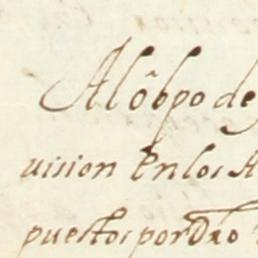 Al obpo de
uision En los A
puestos por Dro